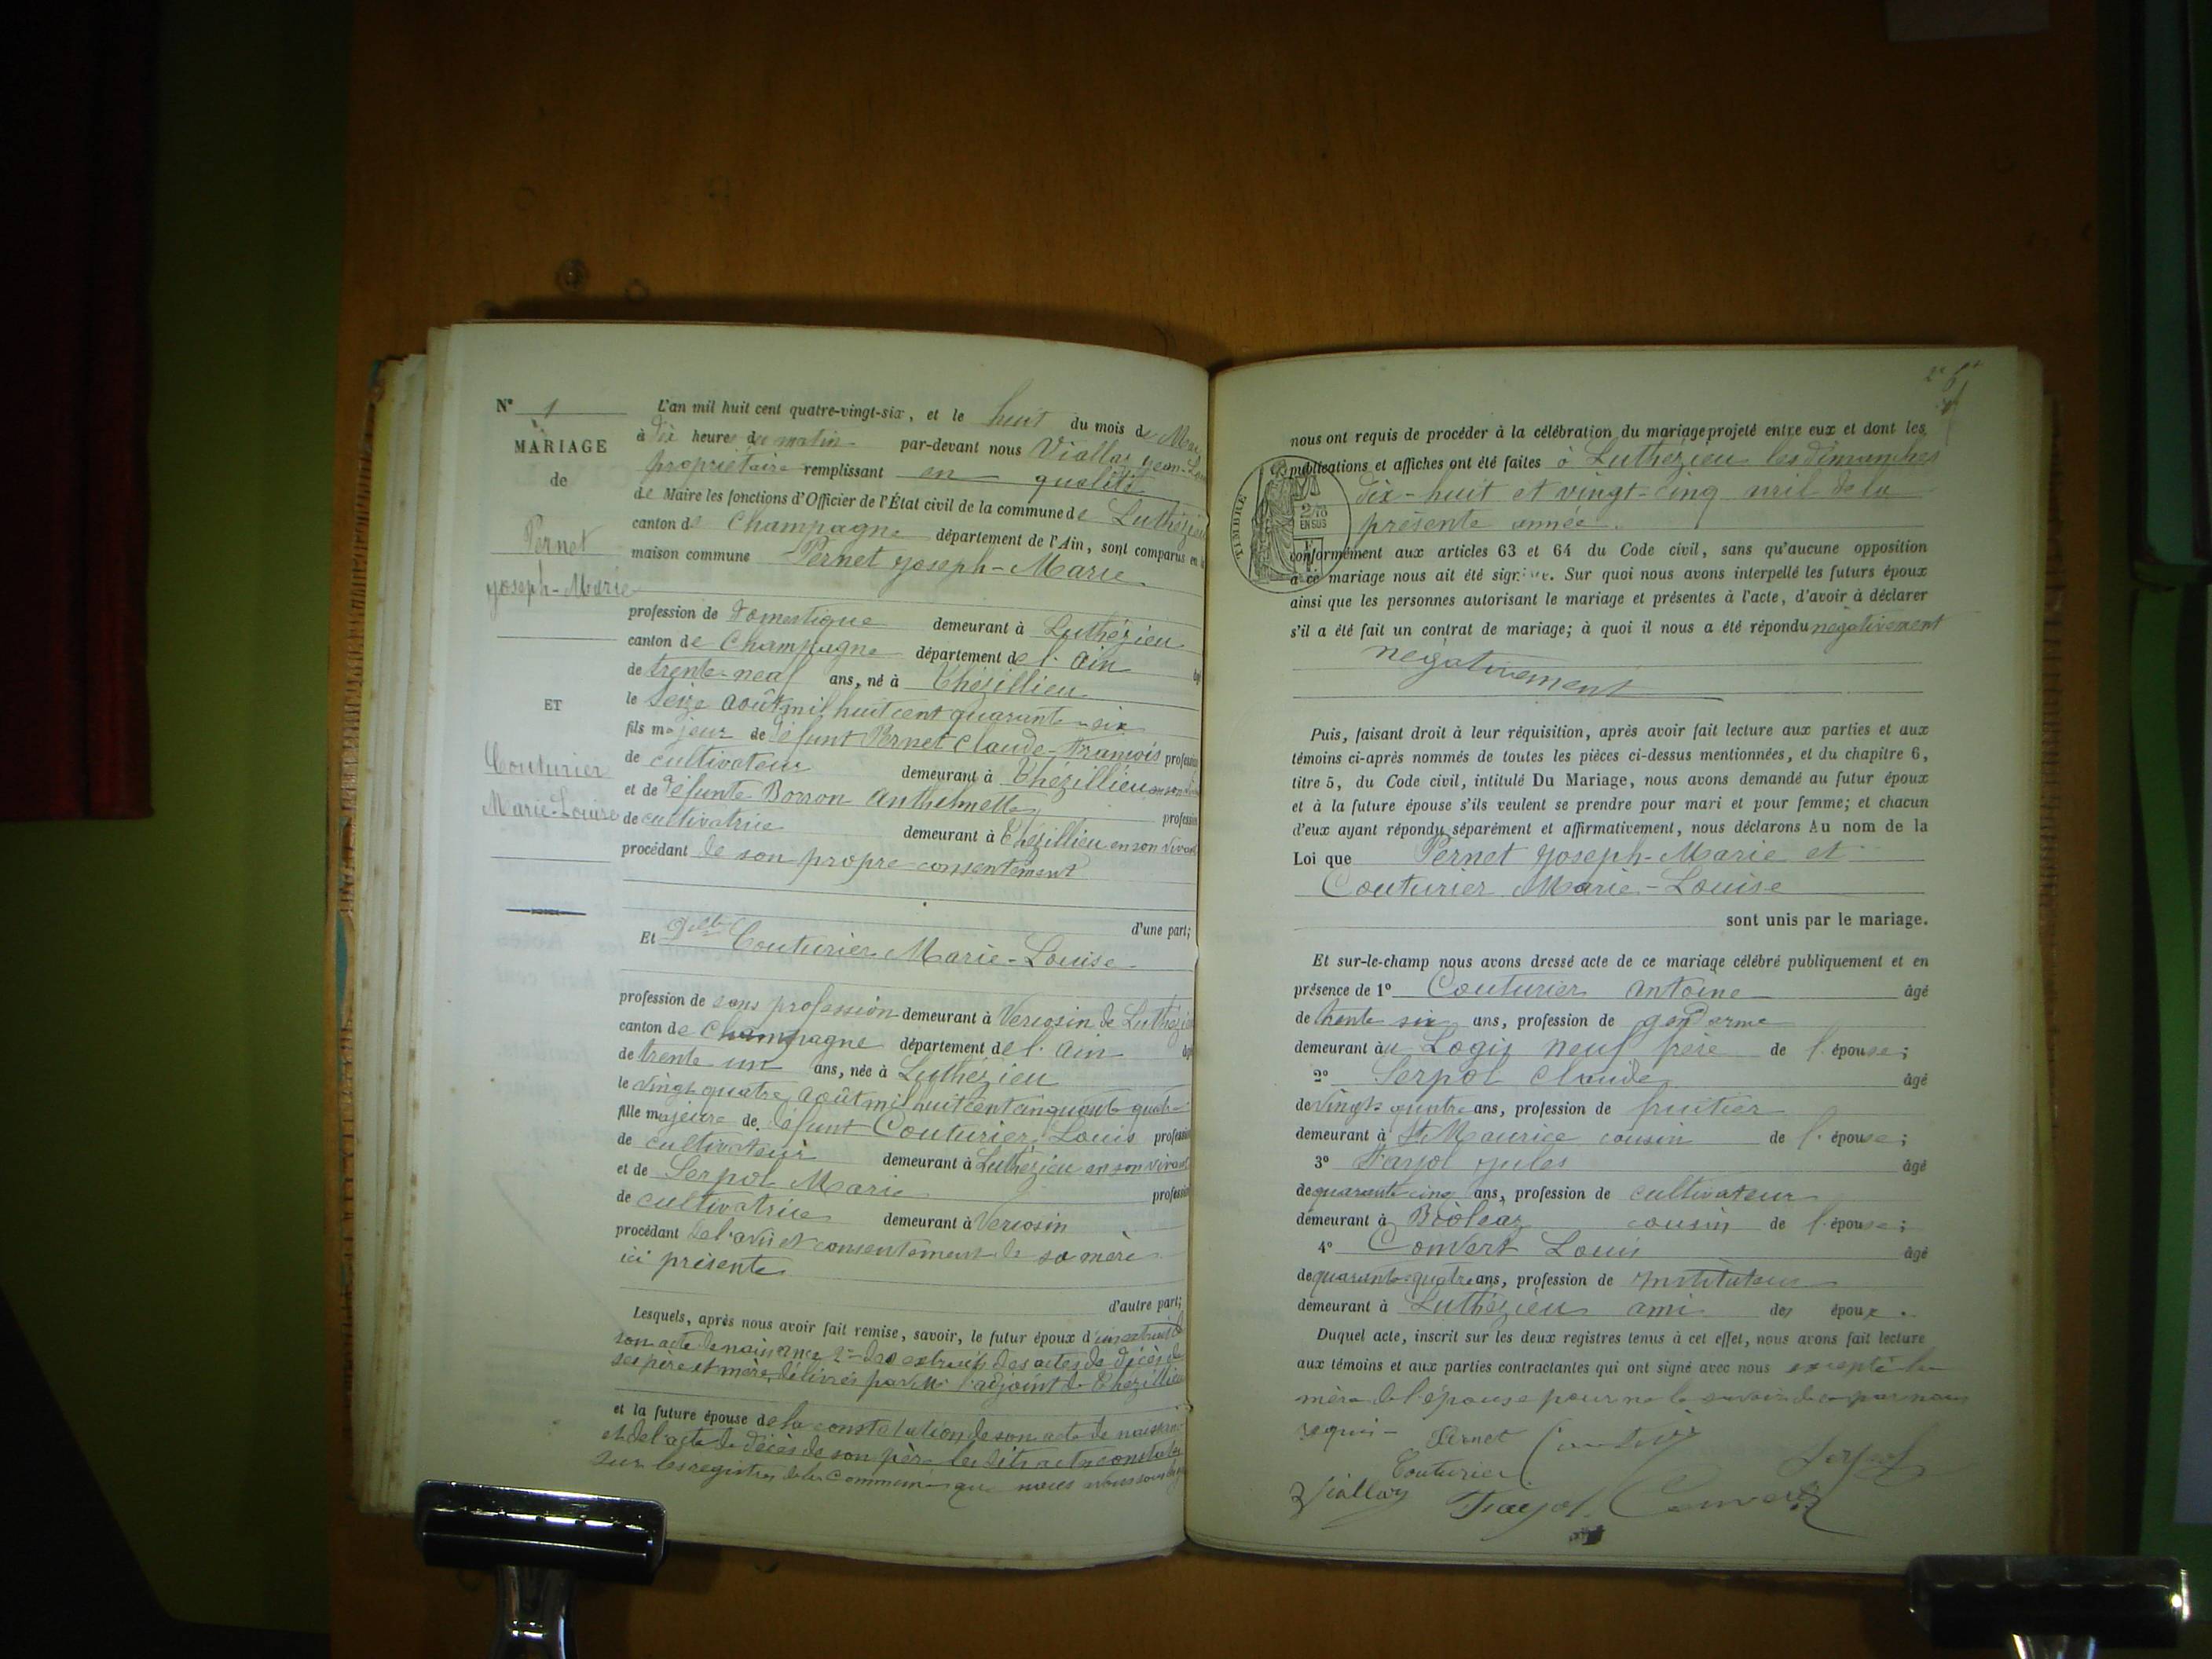 N° 1
MARIAGE
de
Pernet
Joseph-Marie
ET
Couturier
Marie-Louise
L'an mil huit cent quatre-vingt-six, et le huit du mois de Mai
à dix heures du matin par-devant nous Viallaz Jean-
propriétaire remplissant en qualité
de Maire les fonctions d'Officier de l'État civil de la commune de Luthézieu
canton de Champagne département de l'Ain, sont comparus en la
maison commune Pernet Joseph-Marie
profession de domestique demeurant à Luthézieu
canton de Champagne département de l'Ain âgé
de trente-neuf ans, né à Thézillieu
le seize août mil huit cent quarante-six
fils majeur de défunt Pernet Claude-François profession
de cultivateur demeurant à Thézillieu en son
et de défunte Borron Anthelmette profession
de cultivatrice demeurant à Thézillieu en son vivant
procédant de son propre consentement
d'une part;
Et Delle Couturier Marie-Louise
profession de sans profession demeurant à Verosin de Luthézieu
canton de Champagne département de l'Ain âgé
de trente un ans, née à Luthézieu
le vingt-quatre août mil huit cent cinquante-quatre
fille majeure de défunt Couturier Louis profession
de cultivateur demeurant à Luthézieu en son vivant
et de Serpol Marie profession
de cultivatrice demeurant à Verosin
procédant de l'avis et consentement de sa mère
ici présente
d'autre part;
Lesquels, après nous avoir fait remise, savoir, le futur époux d'un extrait de
son acte de naissance 2° des extraits des actes de décès de
ses père et mère, délivrés par Mr l'adjoint de Thézillieu
et la future épouse de la constatation de son acte de naissance
et de l'acte de décès de son père les dits actes constatés
sur les registres de la commune que nous
nous ont requis de procéder à la célébration du mariage projeté entre eux et dont les
publications et affiches ont été faites à Luthézieu les dimanches
dix-huit et vingt-cinq avril de la
présente année.
TIMBRE
2/10
EN SUS
conformément aux articles 63 et 64 du Code civil, sans qu'aucune opposition
à ce mariage nous ait été signifiée. Sur quoi nous avons interpellé les futurs époux
ainsi que les personnes autorisant le mariage et présentes à l'acte, d'avoir à déclarer
s'il a été fait un contrat de mariage; à quoi il nous a été répondu négativement
négativement
Puis, faisant droit à leur réquisition, après avoir fait lecture aux parties et aux
témoins ci-après nommés de toutes les pièces ci-dessus mentionnées, et du chapitre 6,
titre 5, du Code civil, intitulé Du Mariage, nous avons demandé au futur époux
et à la future épouse s'ils veulent se prendre pour mari et pour femme; et chacun
d'eux ayant répondu séparément et affirmativement, nous déclarons Au nom de la
Loi que Pernet Joseph-Marie et
Couturier Marie-Louise
sont unis par le mariage.
Et sur-le-champ nous avons dressé acte de ce mariage célébré publiquement et en
présence de 1° Couturier Antoine âgé
de trente six ans, profession de gendarme
demeurant au Logis Neuf frère de l'épouse;
2° Serpol Claude âgé
de vingt quatre ans, profession de fruitier
demeurant à St Maurice cousin de l'épouse;
3° Fayol Jules âgé
de quarante cinq ans, profession de cultivateur
demeurant à Bioléaz cousin de l'épouse;
4° Convert Louis âgé
de quarante-quatre ans, profession de Instituteur
demeurant à Luthézieu ami des époux.
Duquel acte, inscrit sur les deux registres tenus à cet effet, nous avons fait lecture
aux témoins et aux parties contractantes qui ont signé avec nous excepté la
mère de l'épouse pour ne le savoir de ce par nous
requis - Pernet Couturier
Couturier Serpol
Viallaz Fayol Convert